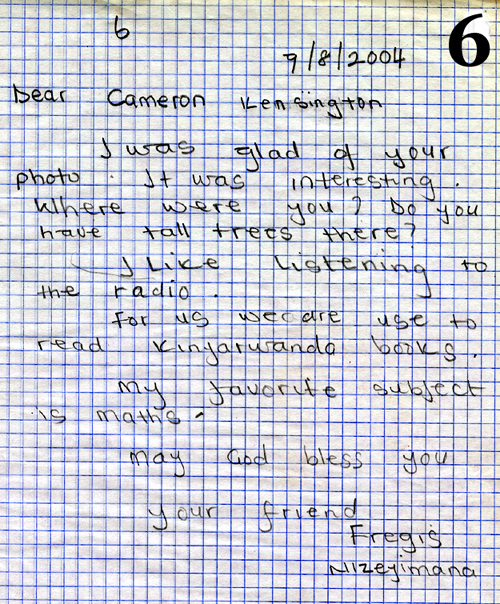 6
6
9/8/2004
Dear Cameron Kensington
I was glad of your
photo. It was interesting.
Where were you? Do you
have tall trees there?
I Like Listening to
the radio.
For us we are use to
read Kinyarwanda books.
My favorite subject
is maths.
May God bless you
your friend
Fregis
Nizeyimana